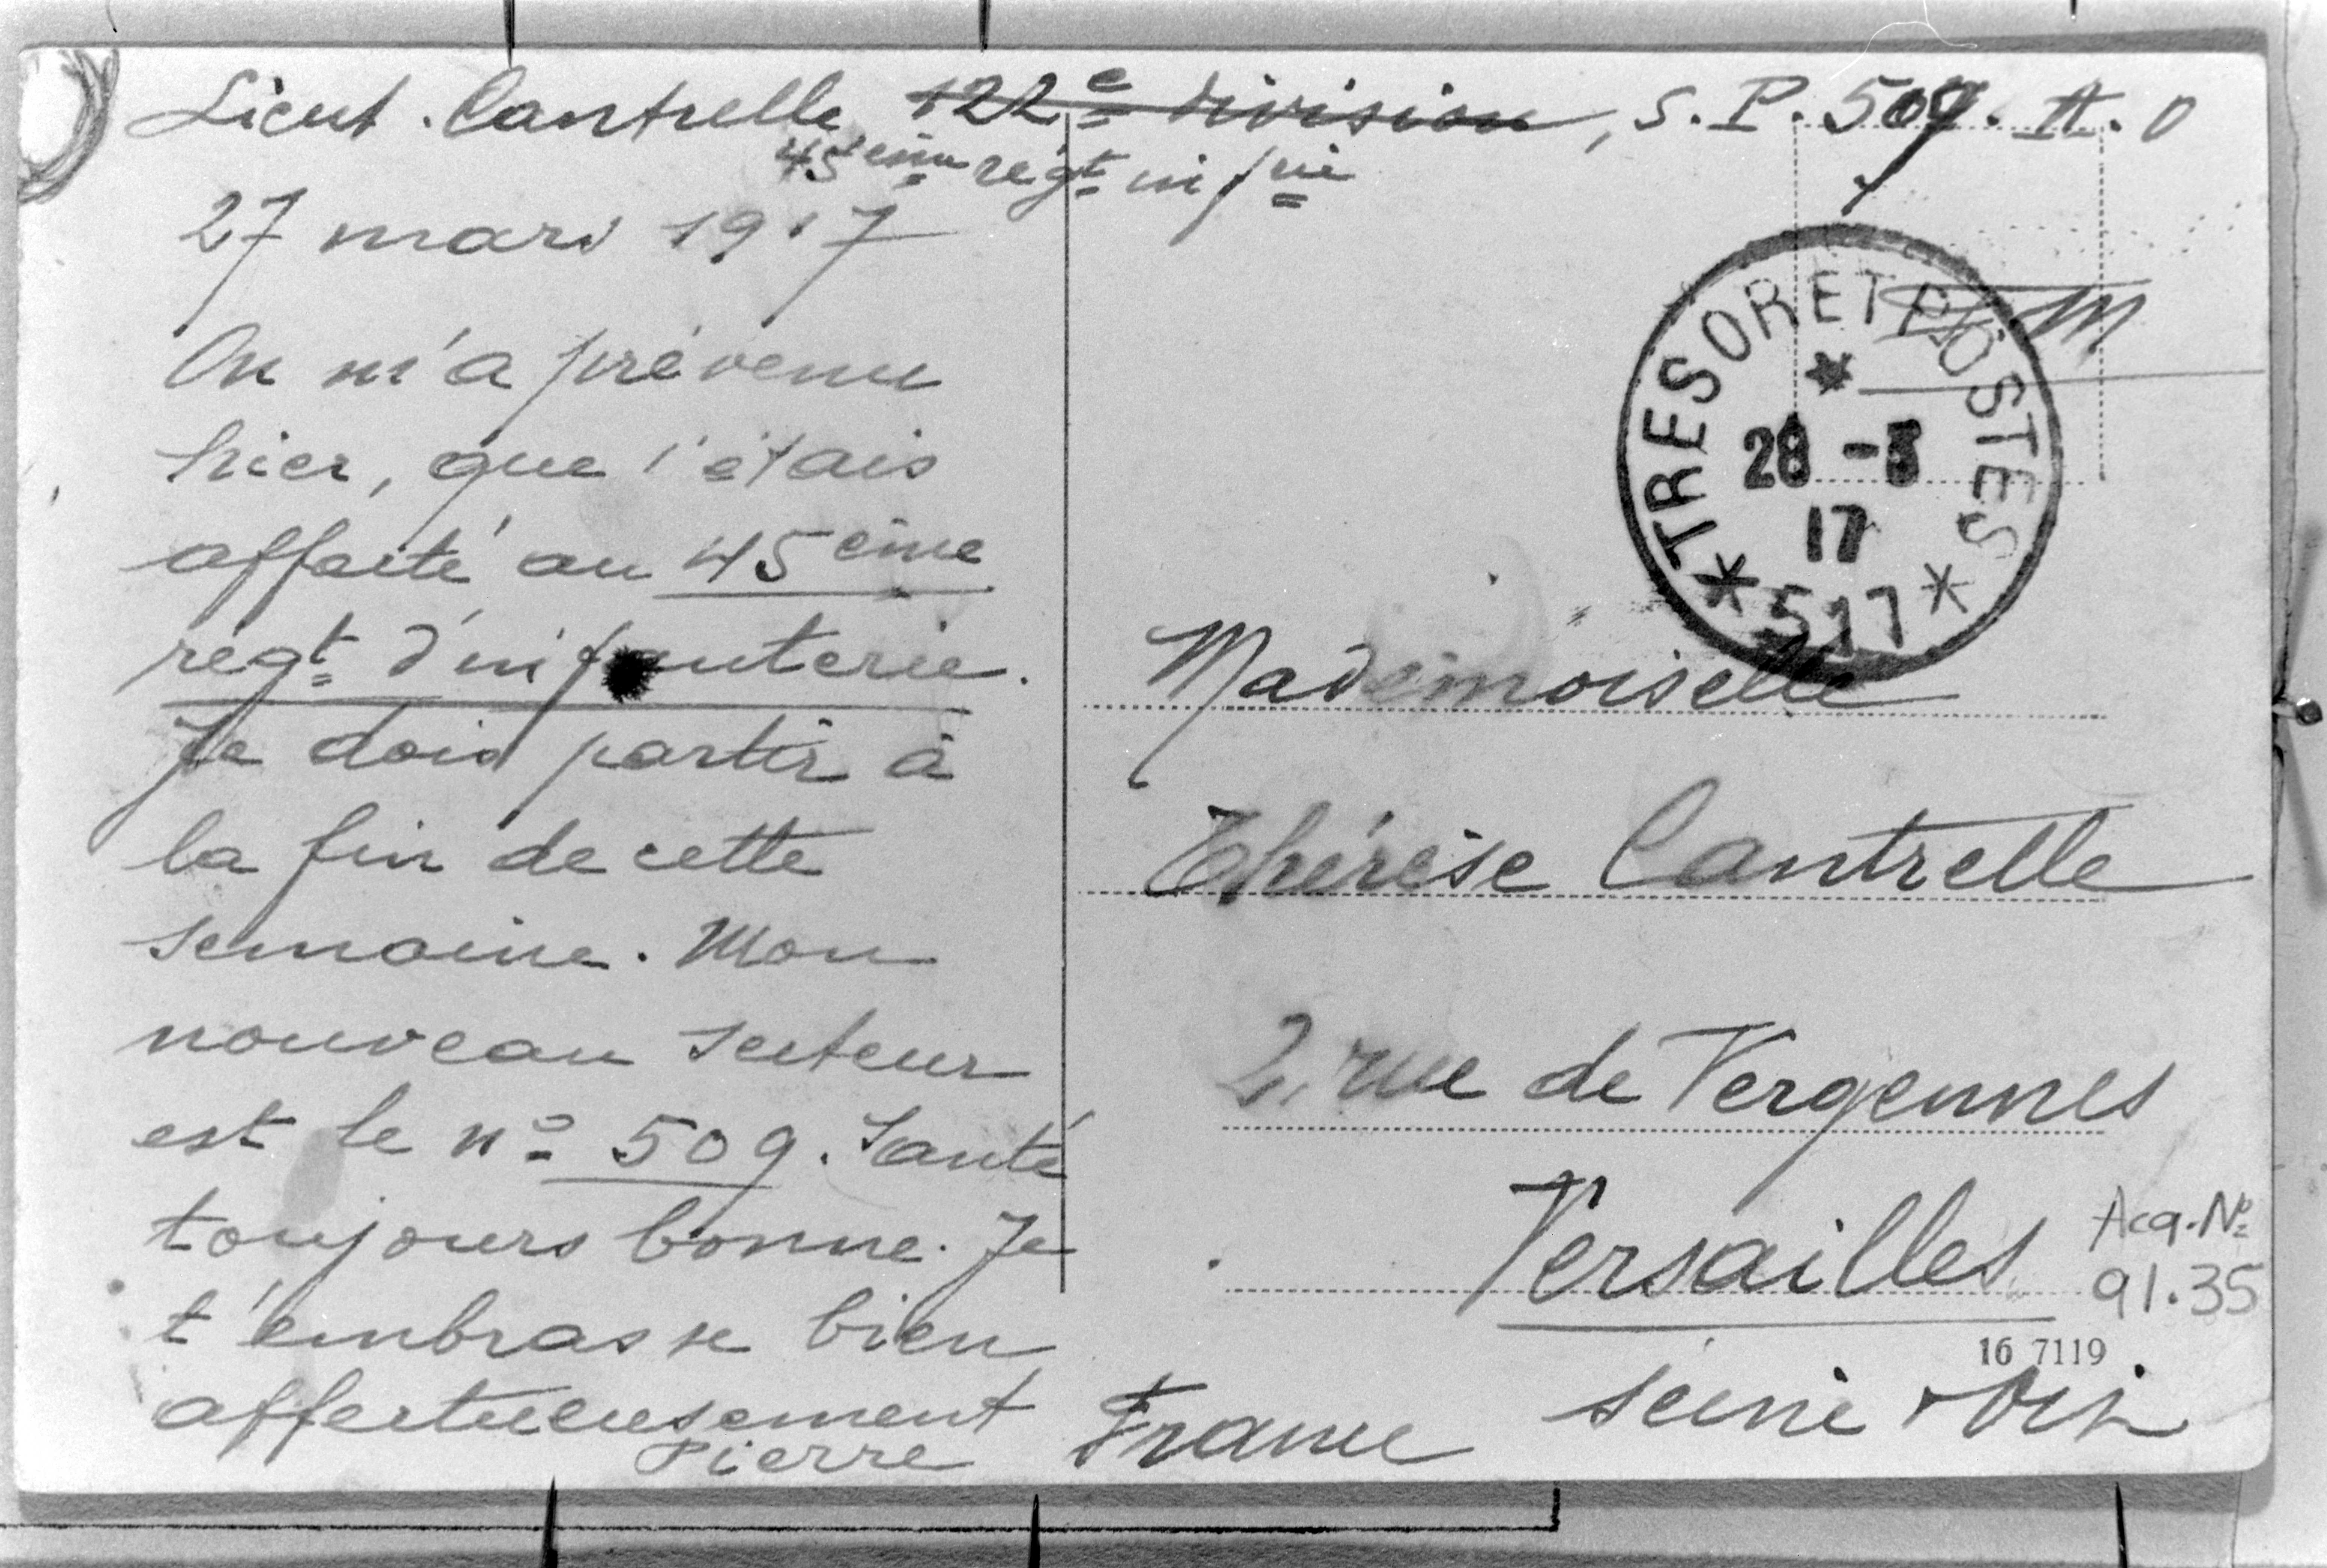 Lieut. Cantrelle 122e division, S.P. 509. A. O
45ème régt infrie
27 mars 1917
On m'a prévenu
hier, que j'étais
affecté au 45ème
régt d'infanterie.
Je dois partir à
la fin de cette
semaine. Mon
nouveau secteur
est le no 509. Santé
toujours bonne. Je
t'embrasse bien
affectueusement
Pierre
F M
TRESOR ET POSTES
28 -3
17
* 517 *
Mademoiselle
Thérèse Cantrelle
2, rue de Vergennes
Versailles
Acq. No
91.35
16 7119
Seine & Oise
France